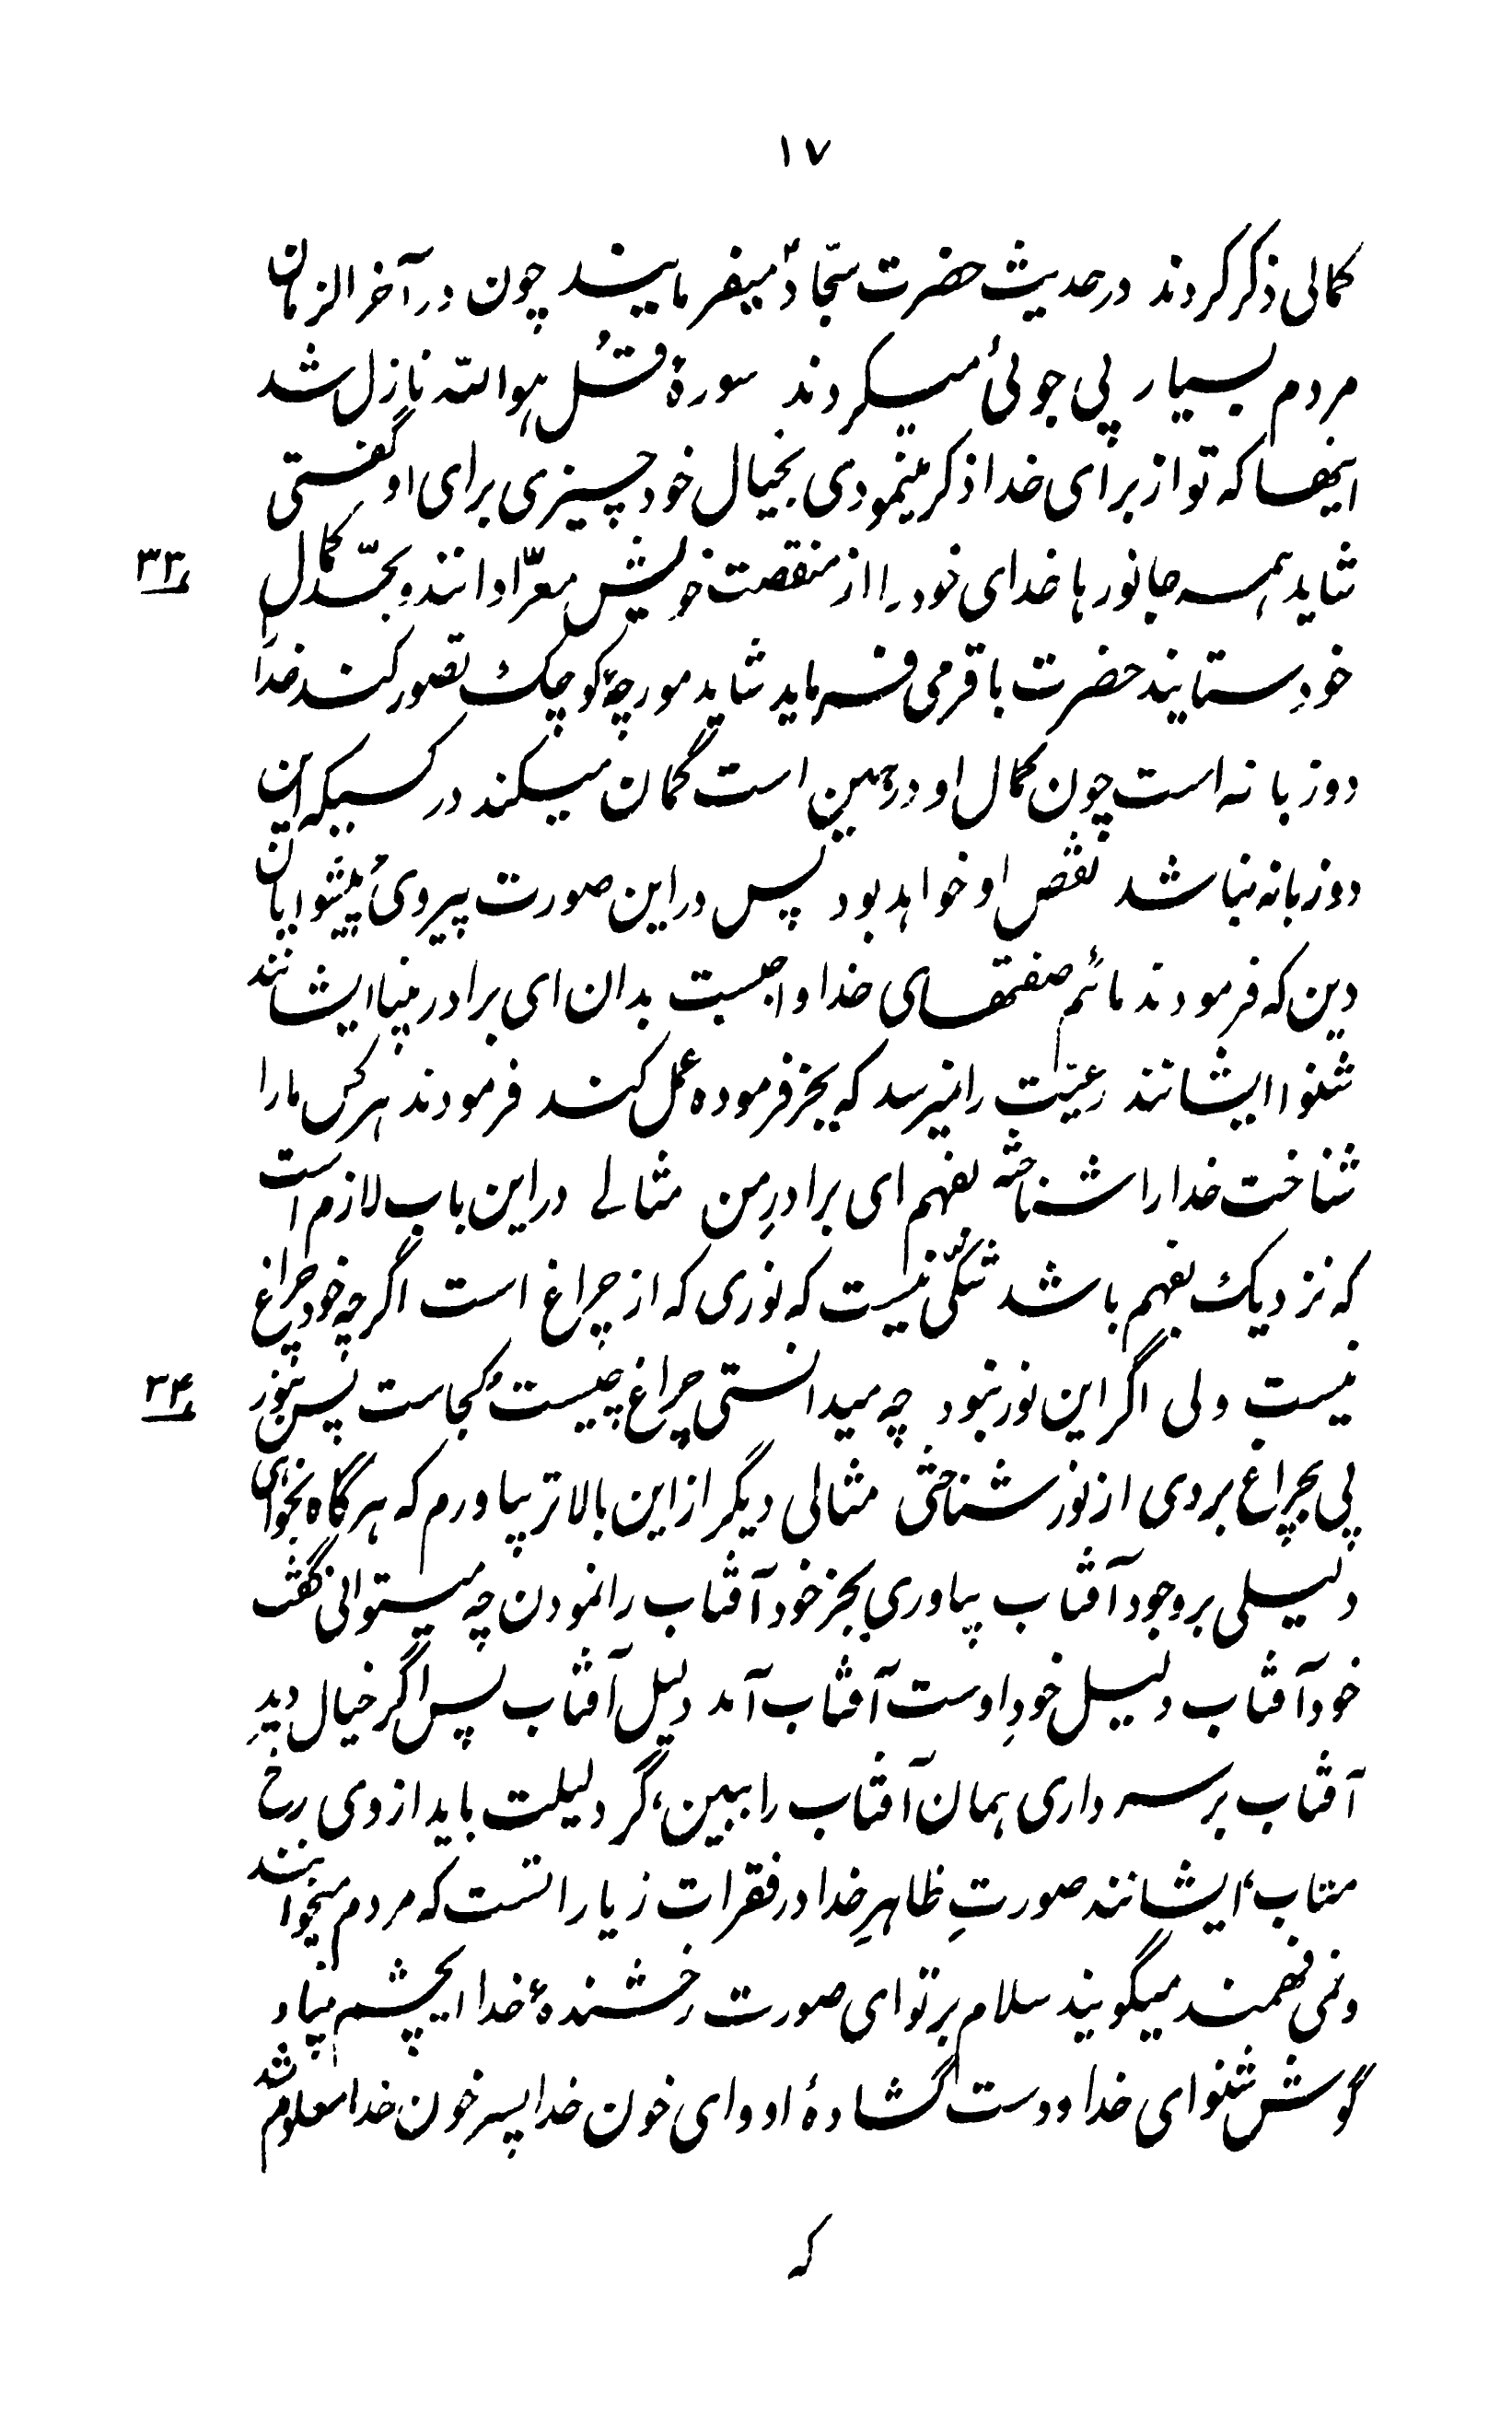 ۱۷
کمالی ذکر کردند در حدیث حضرت سجّادؑ میفرمایند چون در آخر الزمان
مردم بسیار پی جوئی میکردند سورهٔ قُل هو الله نازل شد
اینها که تو از برای خدا ذکر مینمودی بخیال خود چیزی برای او گفتی
شاید همه جانورها خدای خود را از منقصت خویش معرّا دانند و بحدّ کمالِ ۳۳ء
خود ستایند حضرت باقر می فرماید شاید مورچهٔ کوچک تصور کند خدا
دو زبانه است چون کمال او در همین است گمان میکند در کسیکه این
دو زبانه نباشد نقص او خواهد بود پس در این صورت پیروی پیشوایان
دین که فرمودند مائیم صفتهای خدا واجبست بدان ای برادر بینا ایشانند
شنوا ایشانند رعیّت را نمیرسد که بجز فرموده عمل کند فرمودند هر کس ما را
شناخت خدا را شناخته بفهم ای برادرِ من مثالے در این باب لازم است
که نزدیک بفهم باشد شکّی نیست که نوری که از چراغ است اگرچه خود چراغ
نیست ولی اگر این نور نبود چه میدانستی چراغ چیست و کجاست پس بنور ۳۴ء
پی بچراغ بردی از نور شناختی مثالی دیگر از این بالاتر بیاورم که هر گاه بخواهی
دلیلی بر وجود آفتاب بیاوری بجز خود آفتاب را نمودن چه میتوانی گفت
خود آفتاب دلیل خودِ اوست آفتاب آمد دلیل آفتاب پس اگر خیال دیدِ
آفتاب بر سر داری همان آفتاب را ببین، گر دلیلت باید از وی رخ
متاب، ایشانند صورتِ ظاهرِ خدا در فقرات زیاراتست که مردم میخوانند
و نمی فهمند میگویند سلام بر تو ای صورت رخشندهٔ خدا ایچشم بینا و
گوش شنوای خدا و دست گشادهٔ او و ای خون خدا پسر خون خدا معلوم شد
که